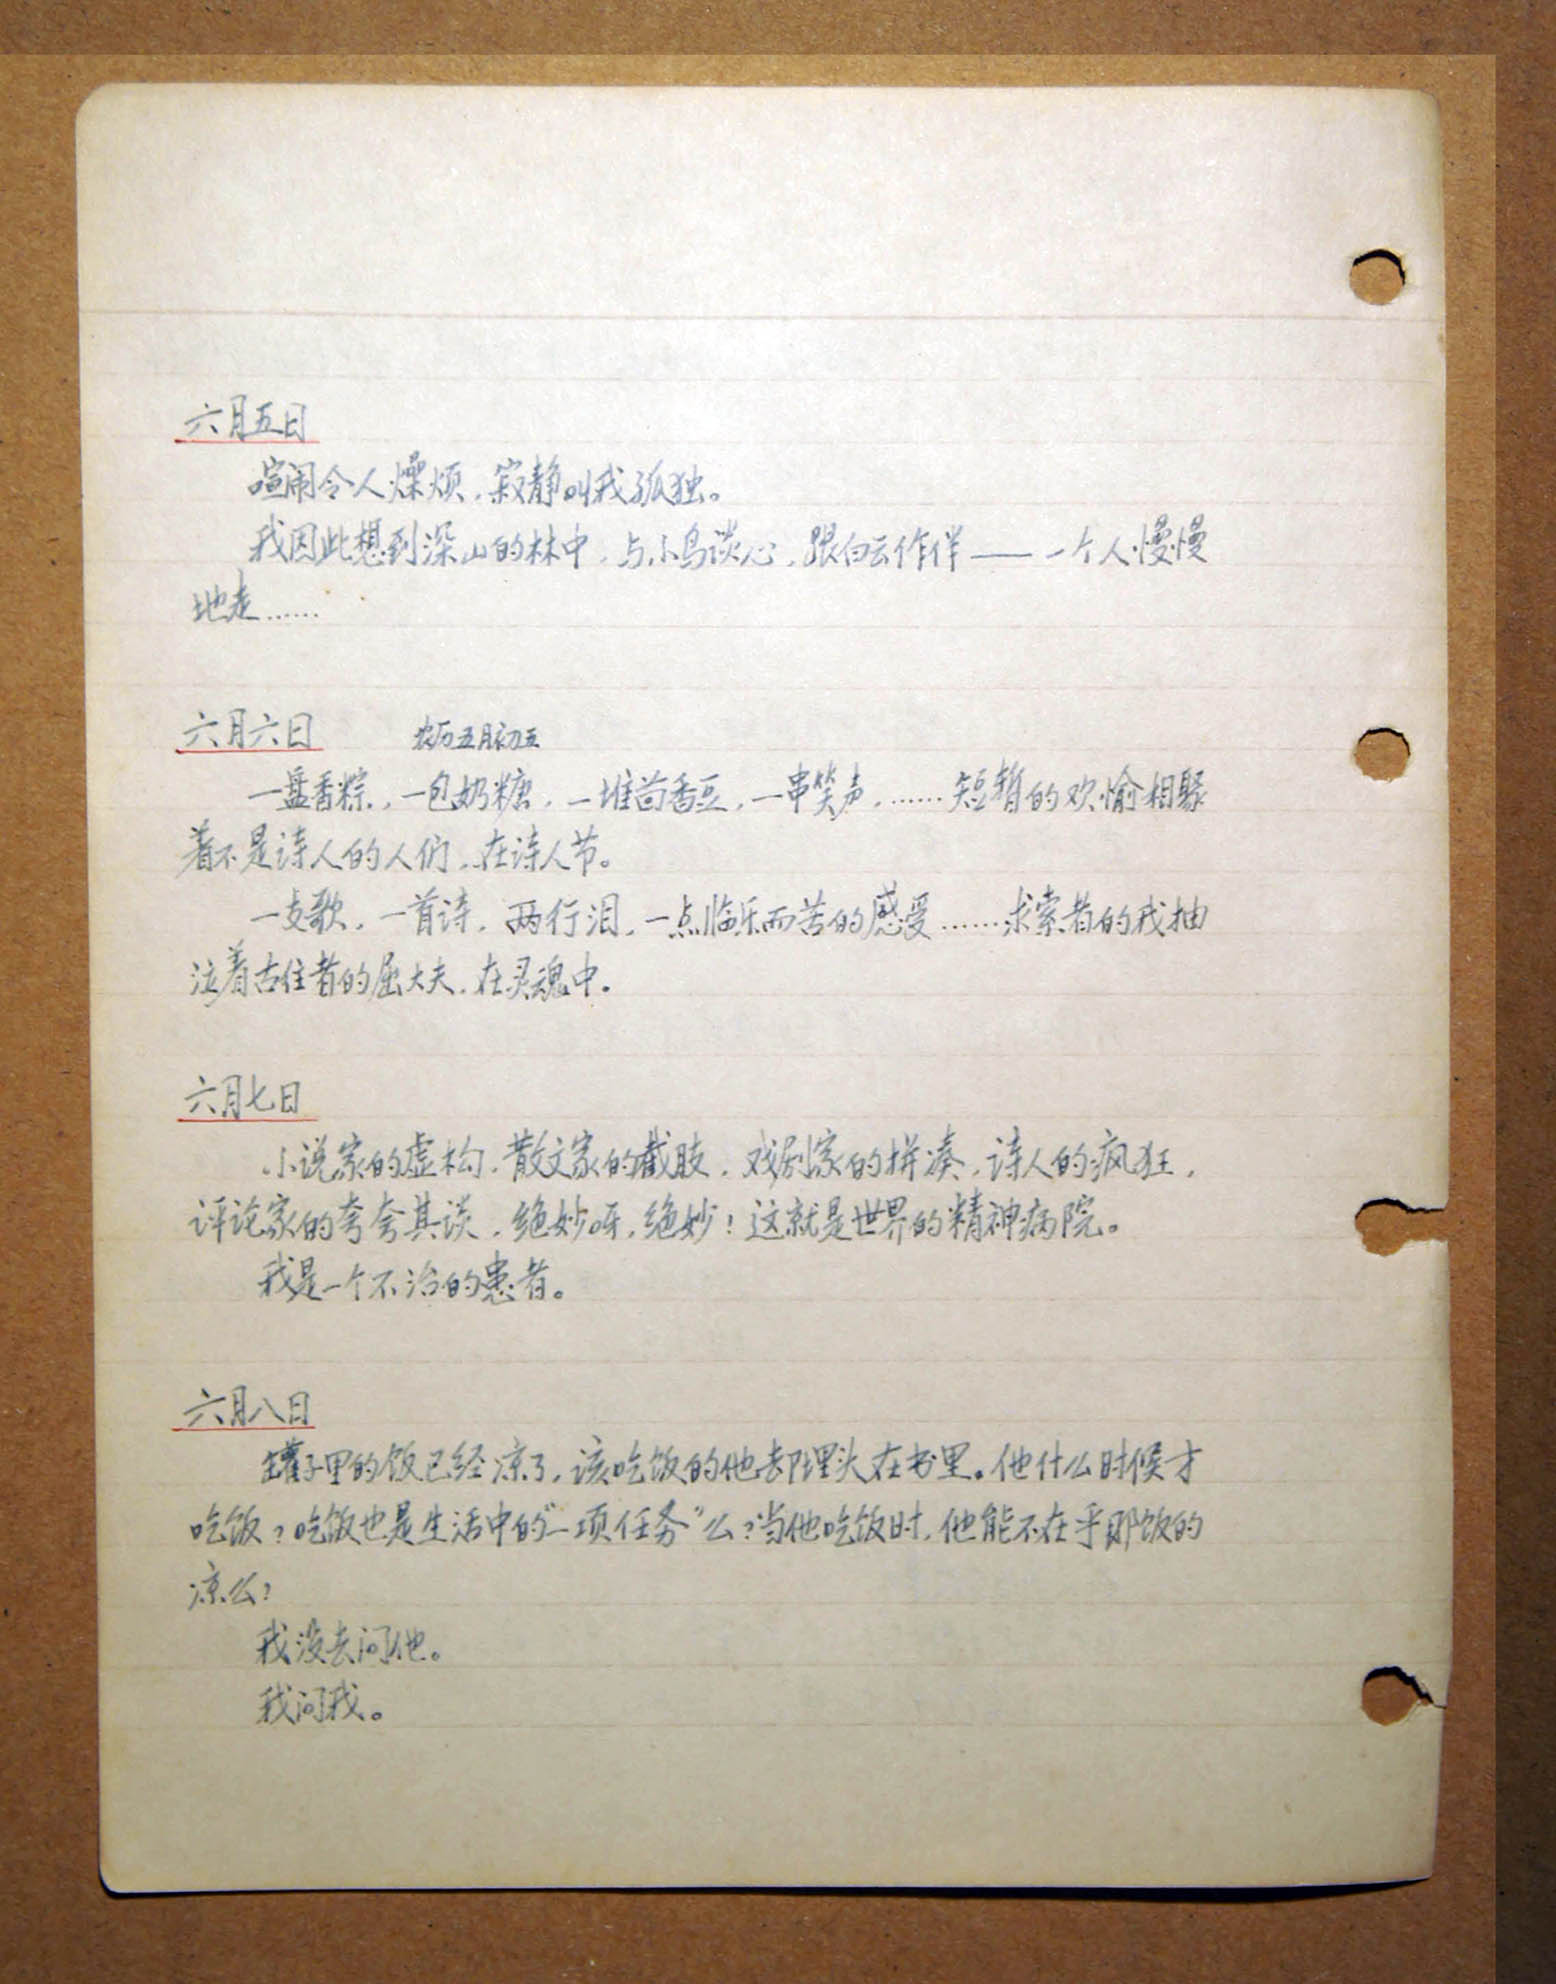 六月五日
喧闹令人燥烦，寂静叫我孤独。
我因此想到深山的林中，与小鸟谈心，跟白云作伴——一个人慢慢
地走……
六月六日 农历五月初五
一盘香粽，一包奶糖，一堆茴香豆，一串笑声，……短暂的欢愉相聚
着不是诗人的人们，在诗人节。
一支歌，一首诗，两行泪，一点临乐而苦的感受……求索者的我抽
泣着古住者的屈大夫，在灵魂中。
六月七日
小说家的虚构，散文家的截肢，戏剧家的拼凑，诗人的疯狂，
评论家的夸夸其谈，绝妙呀，绝妙！这就是世界的精神病院。
我是一个不治的患者。
六月八日
罐子里的饭已经凉了，该吃饭的他却埋头在书里。他什么时候才
吃饭？吃饭也是生活中的“一项任务”么？当他吃饭时，他能不在乎那饭的
凉么？
我没去问他。
我问我。